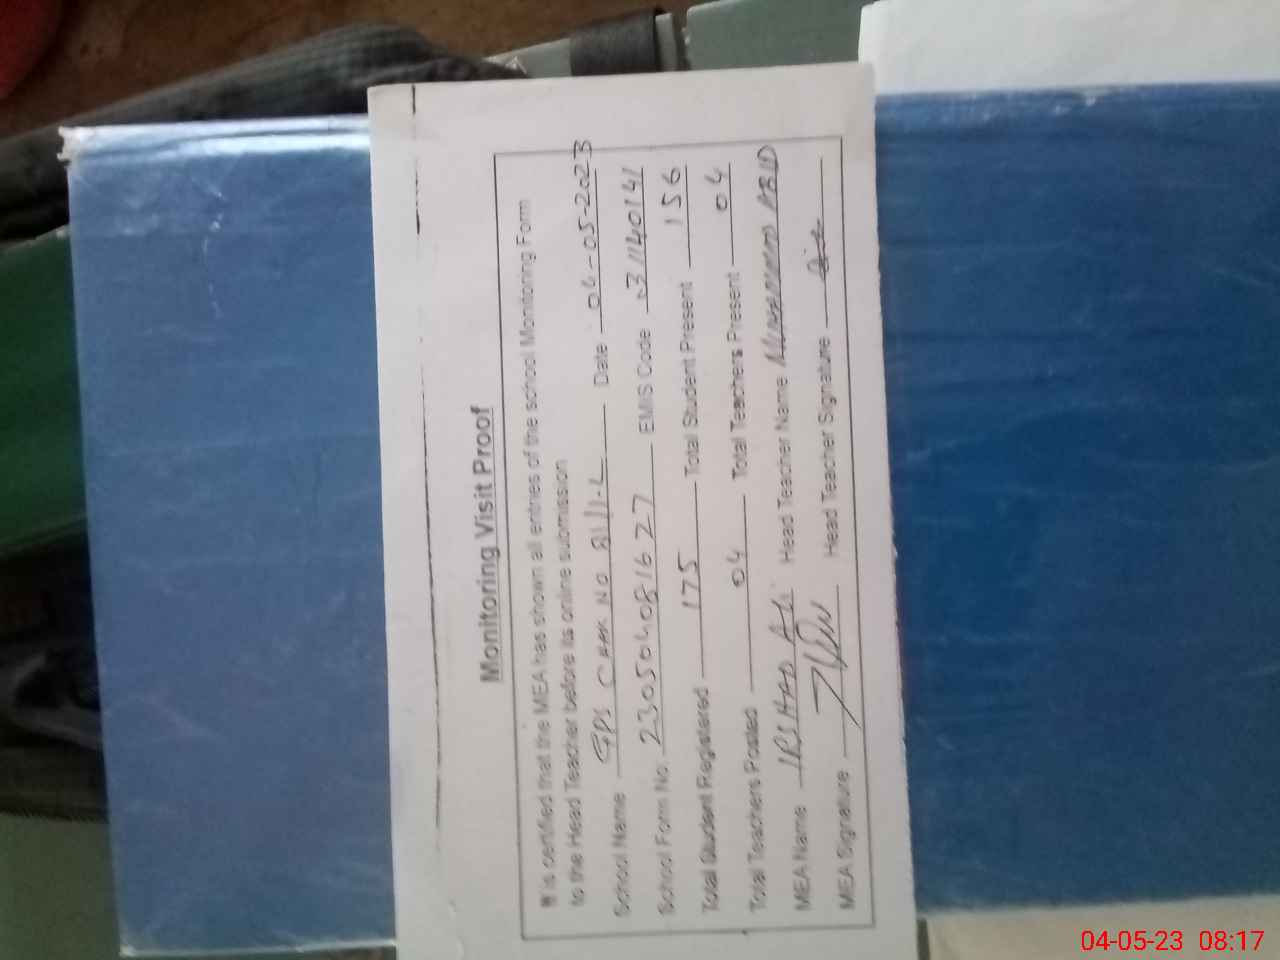 Monitoring Visit Proof
It is certified that the MEA has shown all entries of the school Monitoring Form
to the Head Teacher before its online submission
School Name GPS Chak No 81/1-L Date 04-05-2023
School Form No. 230504081627 EMIS Code 31140141
Total Student Registered 175 Total Student Present 156
Total Teachers Posted 04 Total Teachers Present 04
MEA Name IRSHAD Ali Head Teacher Name MUHAMMAD ABID
MEA Signature Head Teacher Signature
04-05-23 08:17